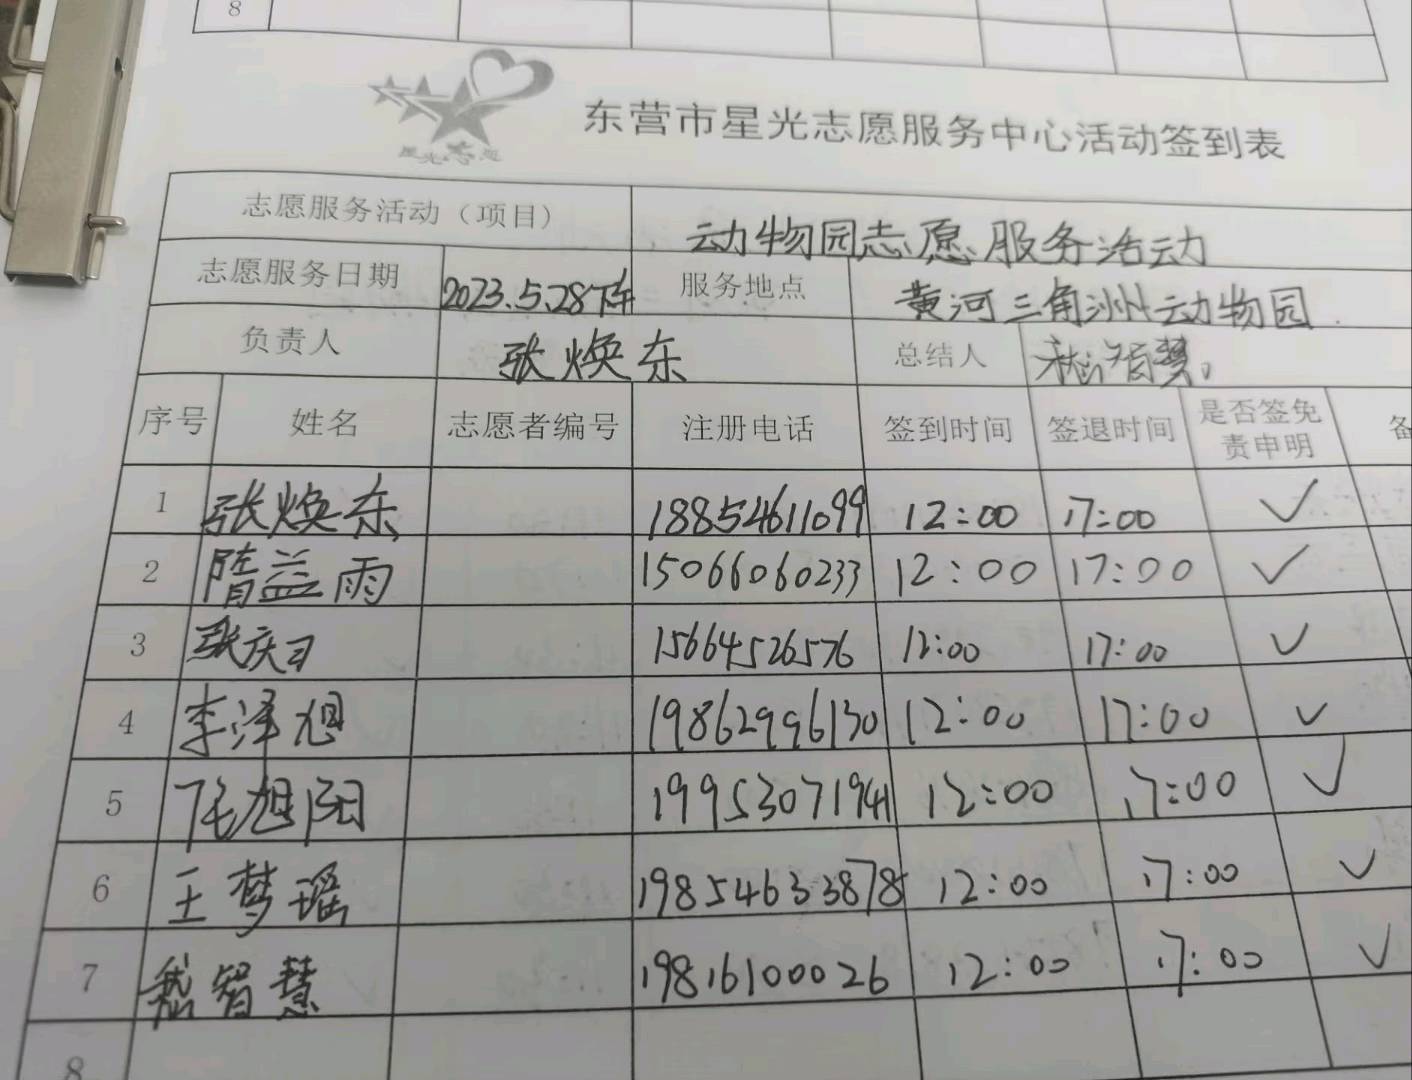 8
星光志愿
东营市星光志愿服务中心活动签到表
志愿服务活动（项目） 动物园志愿服务活动
志愿服务日期 2023.5.28下午 服务地点 黄河三角洲动物园
负责人 张焕东 总结人 嵇智慧
序号 姓名 志愿者编号 注册电话 签到时间 签退时间 是否签免责申明 备
1 张焕东 18854611099 12:00 17:00 ✓
2 隋益雨 15066060233 12:00 17:00 ✓
3 张庆习 15664526576 12:00 17:00 ✓
4 李泽旭 19862996130 12:00 17:00 ✓
5 旭阳 19953071941 12:00 17:00 ✓
6 王梦瑶 19854633878 12:00 17:00 ✓
7 嵇智慧 19816100026 12:00 17:00 ✓
8